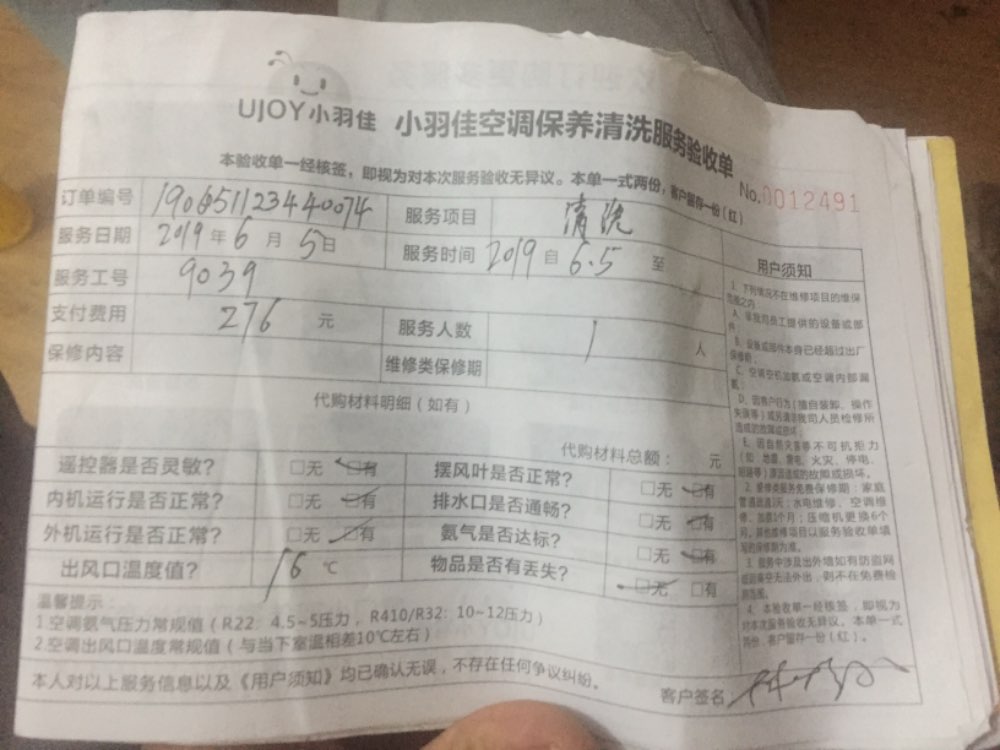 UJOY小羽佳 小羽佳空调保养清洗服务验收单
本验收单一经核签，即视为对本次服务验收无异议。本单一式两份，客户留存一份(红)
No.0012491
订单编号 服务项目 清洗
服务日期 2019年6月5日 服务时间 2019自6.5至
服务工号 9039
支付费用 276 元 服务人数 1 人
保修内容 维修类保修期
代购材料明细（如有）
代购材料总额： 元
遥控器是否灵敏？ □无 □有 摆风叶是否正常？ □无 □有
内机运行是否正常？ □无 □有 排水口是否通畅？ □无 □有
外机运行是否正常？ □无 □有 氨气是否达标？ □无 □有
出风口温度值？ 16 ℃ 物品是否有丢失？ □无 □有
温馨提示：
1.空调氨气压力常规值（R22：4.5~5压力，R410/R32：10~12压力）
2.空调出风口温度常规值（与当下室温相差10℃左右）
本人对以上服务信息以及《用户须知》均已确认无误，不存在任何争议纠纷。
客户签名
用户须知
1.下列情况不在维修项目的维保
范围之内：
A、非我司员工提供的设备或部
件；
B、设备或部件本身已经超过出厂
保修期；
C、空调空机加氨或空调内部漏
氨；
D、因客户行为（擅自装卸、操作
失误等）或另请非我司人员检修所
造成的故障或损坏；
E、因自然灾害等不可抗拒力
（如：地震、雷电、火灾、停电、
短路等）原因造成的故障或损坏。
2.维修类服务免费保修期：家庭
管道疏通7天；水电维修、空调维
修、加氨1个月；压缩机更换6个
月。其他维修项目以服务验收单填
写的保修期为准。
3.服务中涉及出外墙如有防盗网
或因高空无法外出，则不在免费检
测范围。
4.本验收单一经核签，即视为
对本次服务验收无异议。本单一式
两份，客户留存一份（红）。